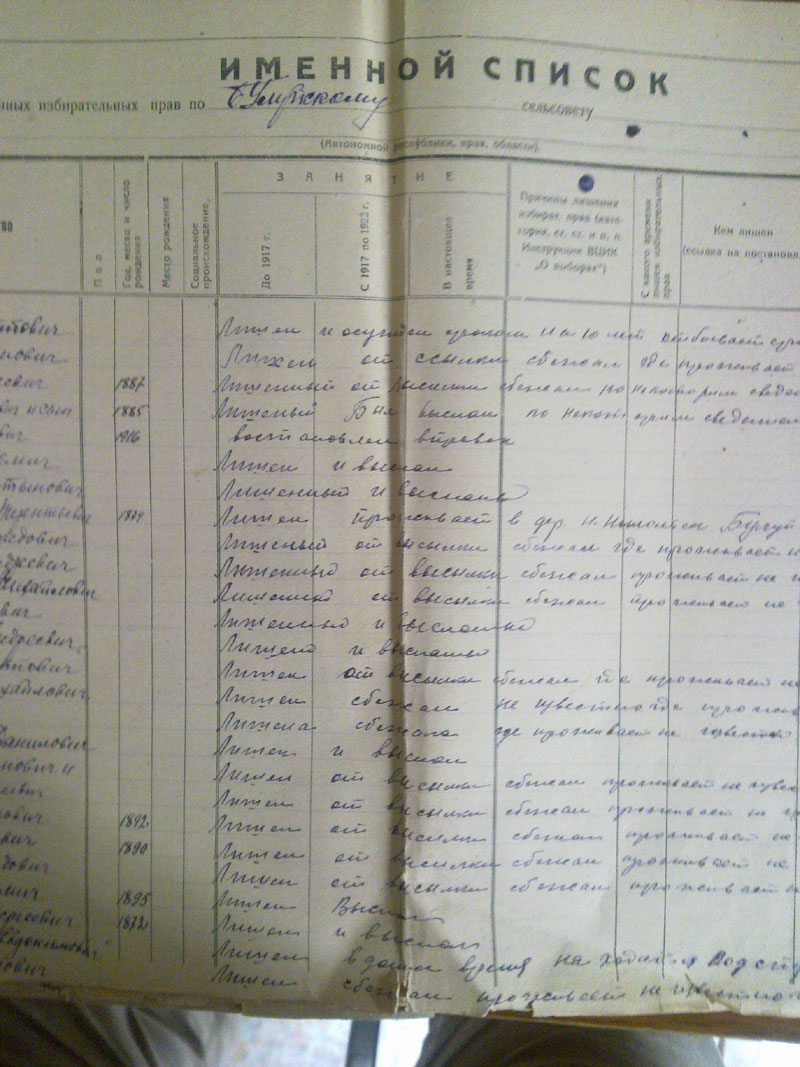 ИМЕННОЙ СПИСОК
нных избирательных прав по сельсовету
(Автономной республики, края, области).
ЗАНЯТИЕ
тво
Пол
Год, месяц и число рождения
Место рождения
Социальное происхождение,
До 1917 г.
С 1917 по 1922 г.
В настоящее время
Причины лишения
избират. прав (кате-
гория, ст. ст. и п. п.
Инструкции ВЦИК
„О выборах")
С какого времени лишен избирательных прав
Кем лишен
(ссылка на постанов
тович Лишен и осужден сроком на 10 лет отбывает
нович Лишен от ссылки сбежал где проживает
евич 1887 Лишенный от высылки сбежал по некоторым сведе
вич и сын 1885 Лишеный Был выслан по некоторым сведениям
вич 1916 востановлен вправах
емич Лишен и выслан
тьянович Лишенный и высланы
Терентьевич 1874 Лишен проживает в дер. Н. Никольск
едович Лишеный от высылки сбежал где проживает н
джевич Лишенный от высылки сбежал проживает не
Михайлович Лишеный от высылки сбежал проживает не
вич Лишенный и высланы
ндреевич Лишен и высланы
нович Лишен от высылки сбежал где проживает не
хайлович Лишен сбежал не извесно где прожив
Лишена сбежала где проживает не извесно
Данилович Лишен и выслан
мович и Лишен от высылки сбежал проживает не изве
левич Лишен от высылки сбежал проживает не
ович 1892 Лишен от высылки сбежал проживает не
вич 1890 Лишен от высылки сбежал проживает не
дович Лишен от высылки сбежал проживает н
вич 1895 Лишен Выслан
ргеевич 1872 Лишен и выслан
Евдокимович Лишен в данн время на ходится под
ович Лишен сбежал проживает не извесно